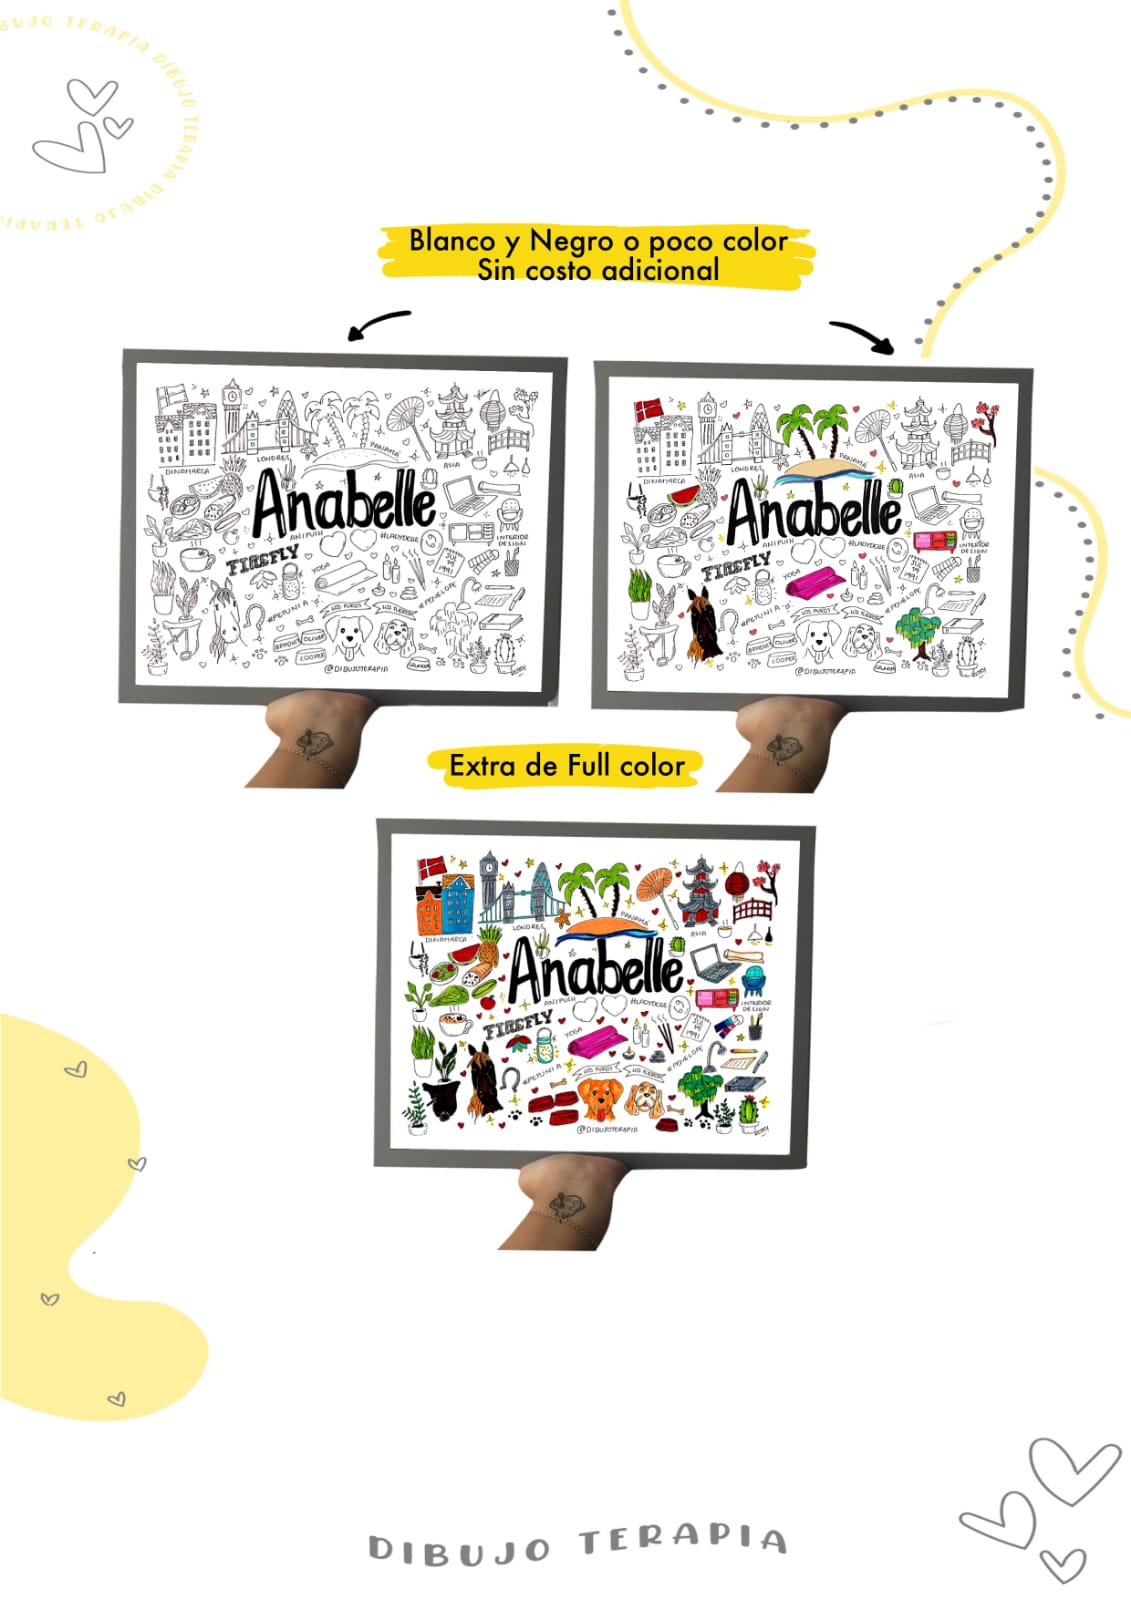 DIBUJO TERAPIA DIBUJO TERAPIA DIBUJO TERAPIA
Blanco y Negro o poco color
Sin costo adicional
DINAMARCA
LONDRES
PANAMÁ
ASIA
Anabelle
ANIPUSH
#LADYDEBE
INTERIOR
DESIGN
FIREFLY
YOGA
JUL
19
1991
#PETUNIA
LOS PUROS
LOS PERROS
#PENELOPE
BRADLEY
OLIVER
COOPER
@DIBUJOTERAPIA
DINAMARCA
LONDRES
PANAMÁ
ASIA
Anabelle
ANIPUSH
#LADYDEBE
INTERIOR
DESIGN
FIREFLY
YOGA
JUL
19
1991
#PETUNIA
#PENELOPE
OLIVER
COOPER
@DIBUJOTERAPIA
Extra de Full color
DINAMARCA
LONDRES
PANAMÁ
ASIA
Anabelle
ANIPUSH
#LADYDEBE
INTERIOR
DESIGN
FIREFLY
YOGA
JUL
19
1991
#PETUNIA
#PENELOPE
@DIBUJOTERAPIA
DIBUJO TERAPIA